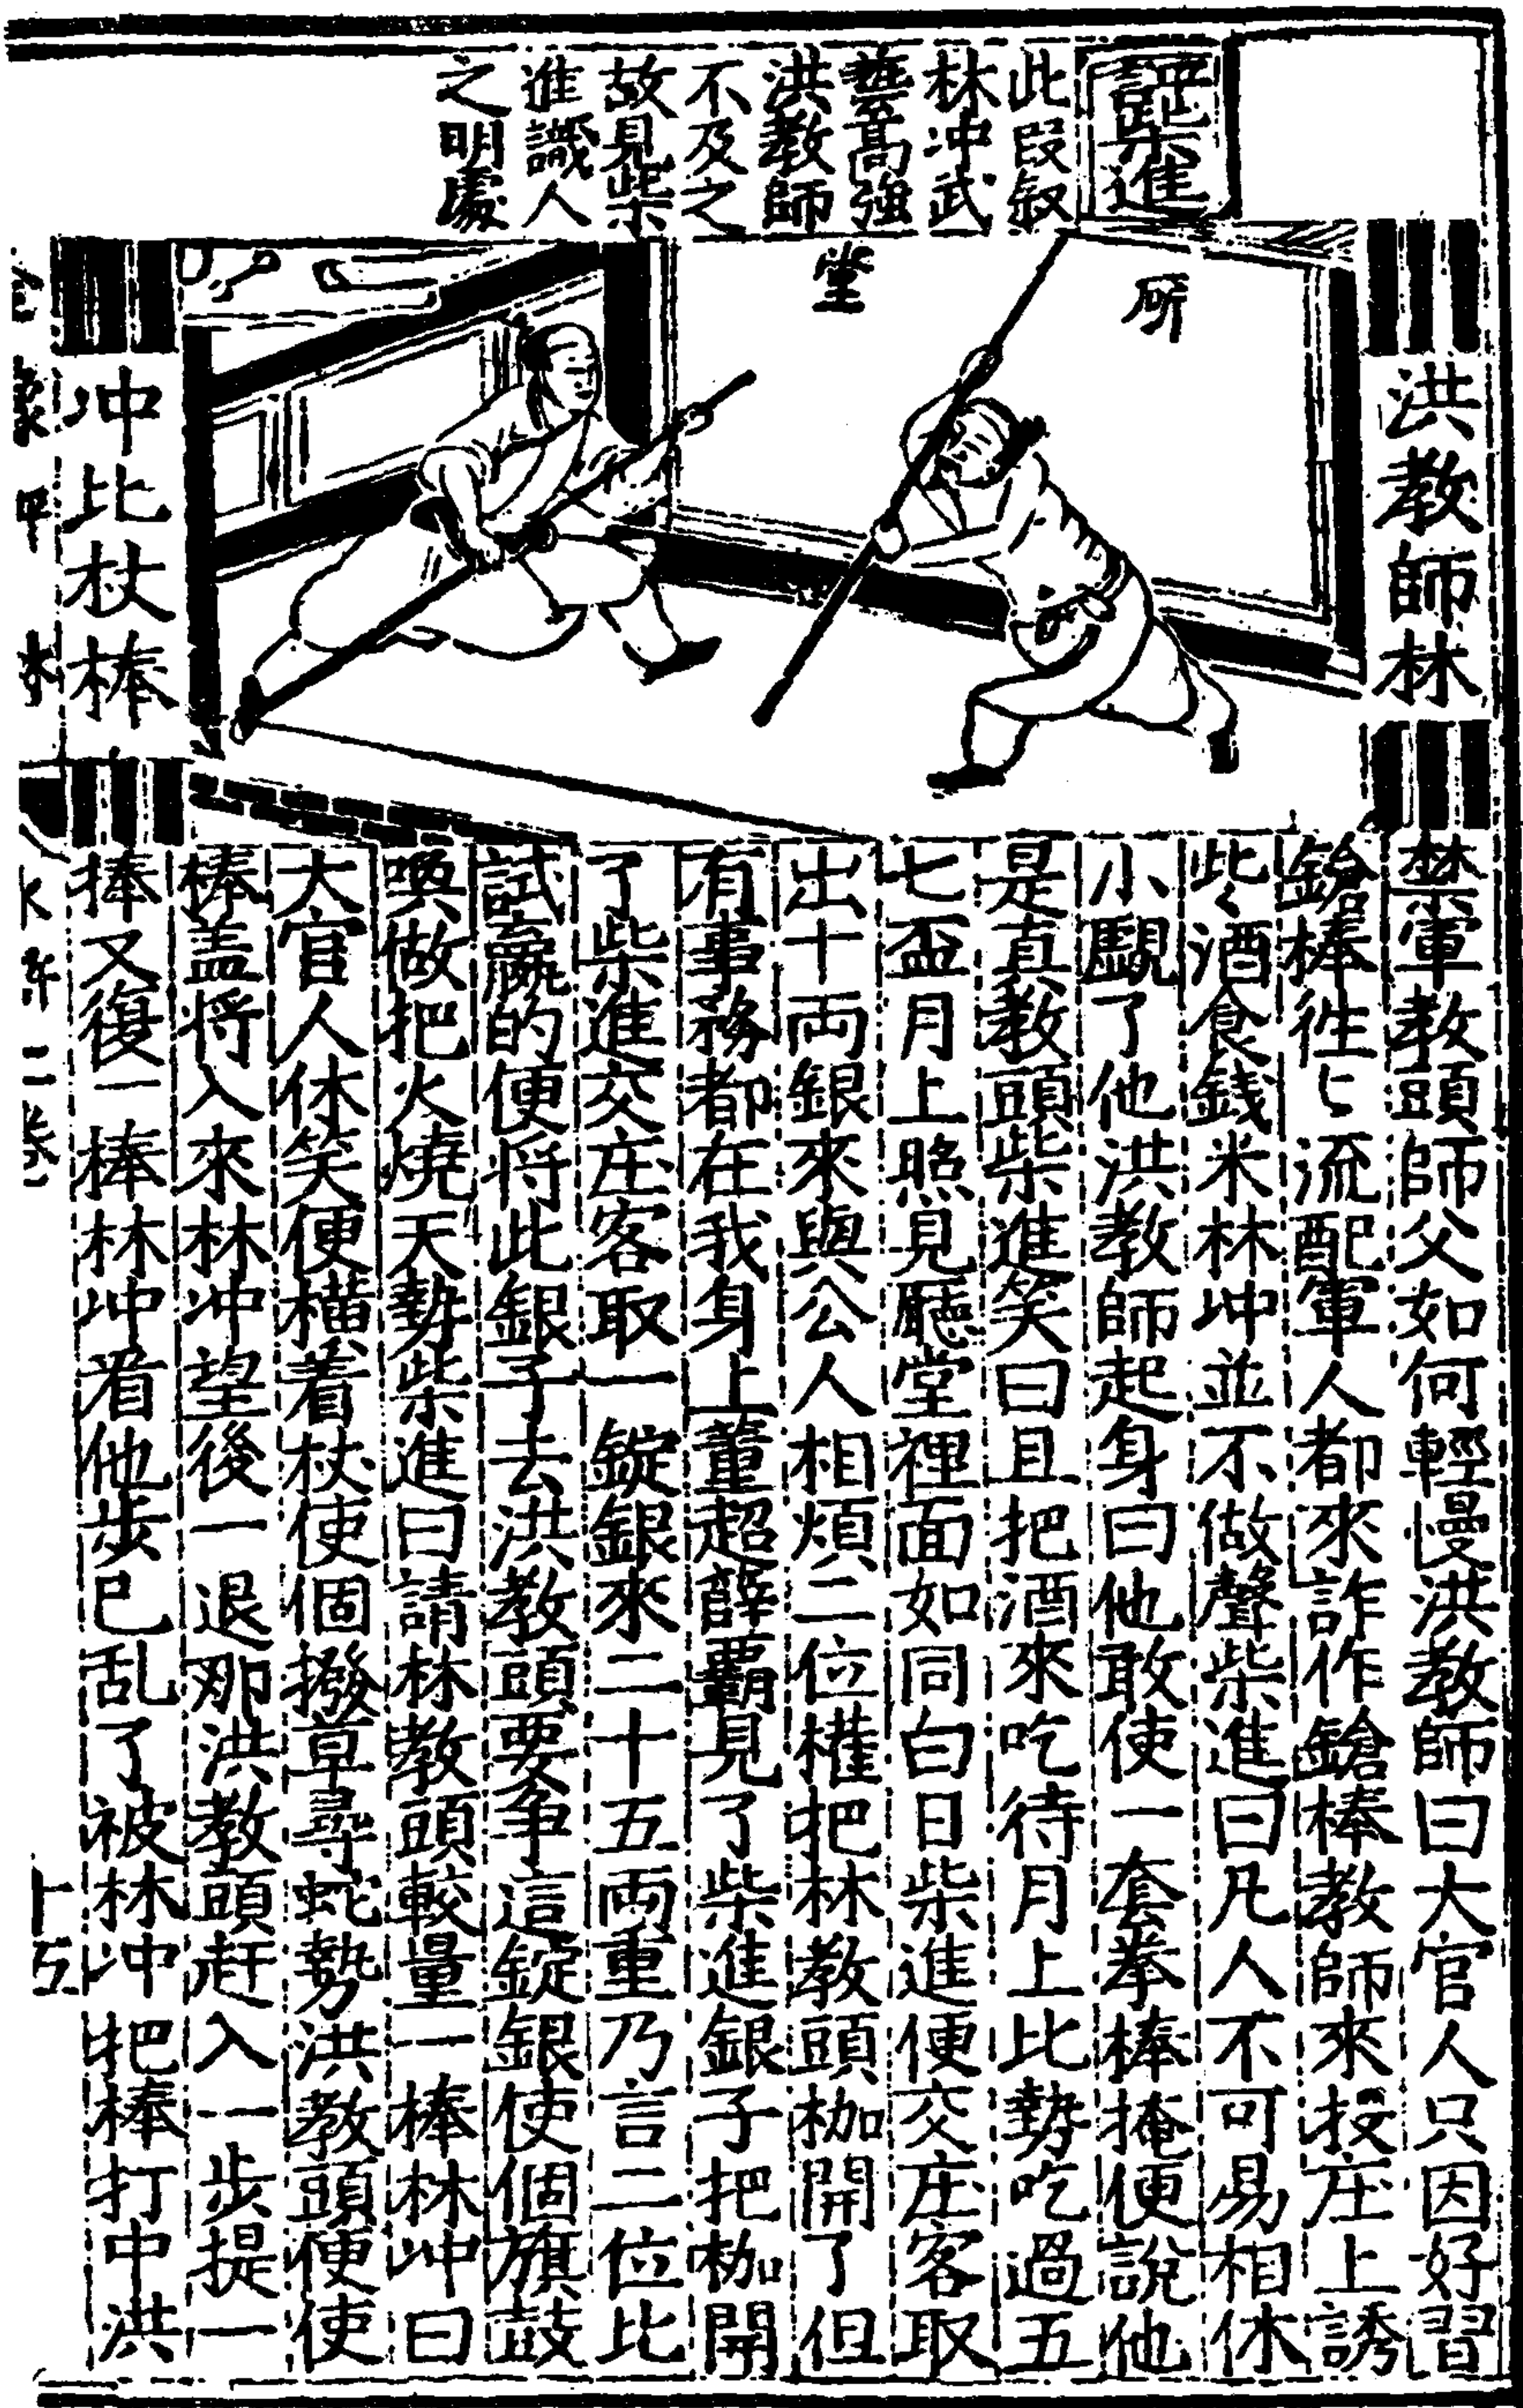 評柴進
此段叙
林冲武
藝高強
洪教師
不及之
故見柴
進識人
之明處
洪教師林
冲比杖棒
研
堂
禁軍教頭師父如何輕慢洪教師曰大官人只因好習
鎗棒徃〻流配軍人都來詐作鎗棒教師來投庄上誘
些酒食錢米林冲並不做聲柴進曰凡人不可易相休
小覷了他洪教師起身曰他敢使一套拳棒掩便說他
是真教頭柴進笑曰且把酒來吃待月上比勢吃過五
七盃月上照見廳堂裡面如同白日柴進便交庄客取
出十両銀來與公人相煩二位權把林教頭枷開了但
有事務都在我身上董超薛霸見了柴進銀子把枷開
了柴進交庄客取一錠銀來二十五両重乃言二位比
試贏的便将此銀子去洪教頭要爭這錠銀使個旗鼓
喚做把火燒天勢柴進曰請林教頭較量一棒林冲曰
大官人休笑便橫着杖使個撥草尋蛇勢洪教頭便使
棒盖将入來林冲望後一退那洪教頭赶入一步提一
捧又復一棒林冲看他步已乱了被林冲把棒打中洪
二卷
十五